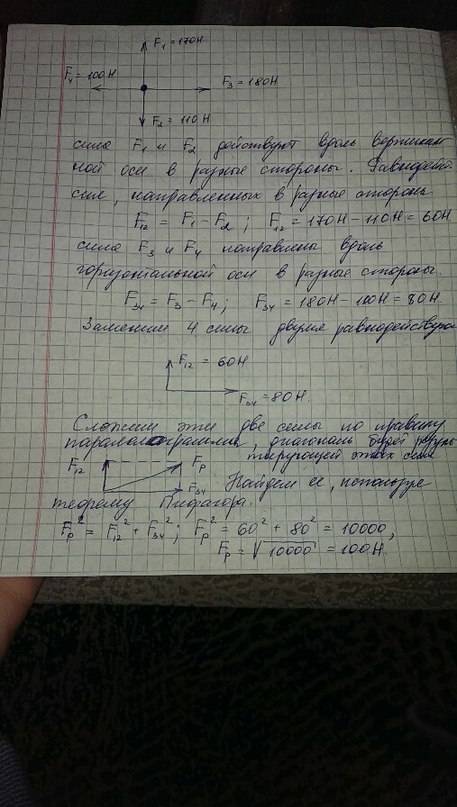 F₁ = 170Н
F₄ = 100Н
F₃ = 180Н
F₂ = 110Н
силы F₁ и F₂ действуют вдоль вертикаль
ной оси в разные стороны. Равнодей
сил, направленных в разные стороны
F₁₂ = F₁ - F₂; F₁₂ = 170Н - 110Н = 60Н
силы F₃ и F₄ направлены вдоль
горизонтальной оси в разные стороны
F₃₄ = F₃ - F₄; F₃₄ = 180Н - 100Н = 80Н.
Заменим 4 силы двумя равнодейству
F₁₂ = 60Н
F₃₄ = 80Н.
Сложим эти две силы по правилу
параллелограмма, диагональ будет резуль
тирующей этих сил
F₁₂ Fр
F₃₄ Найдем ее, используя
теорему Пифагора.
Fр² = F₁₂² + F₃₄²; Fр² = 60² + 80² = 10000,
Fр = √10000 = 100Н